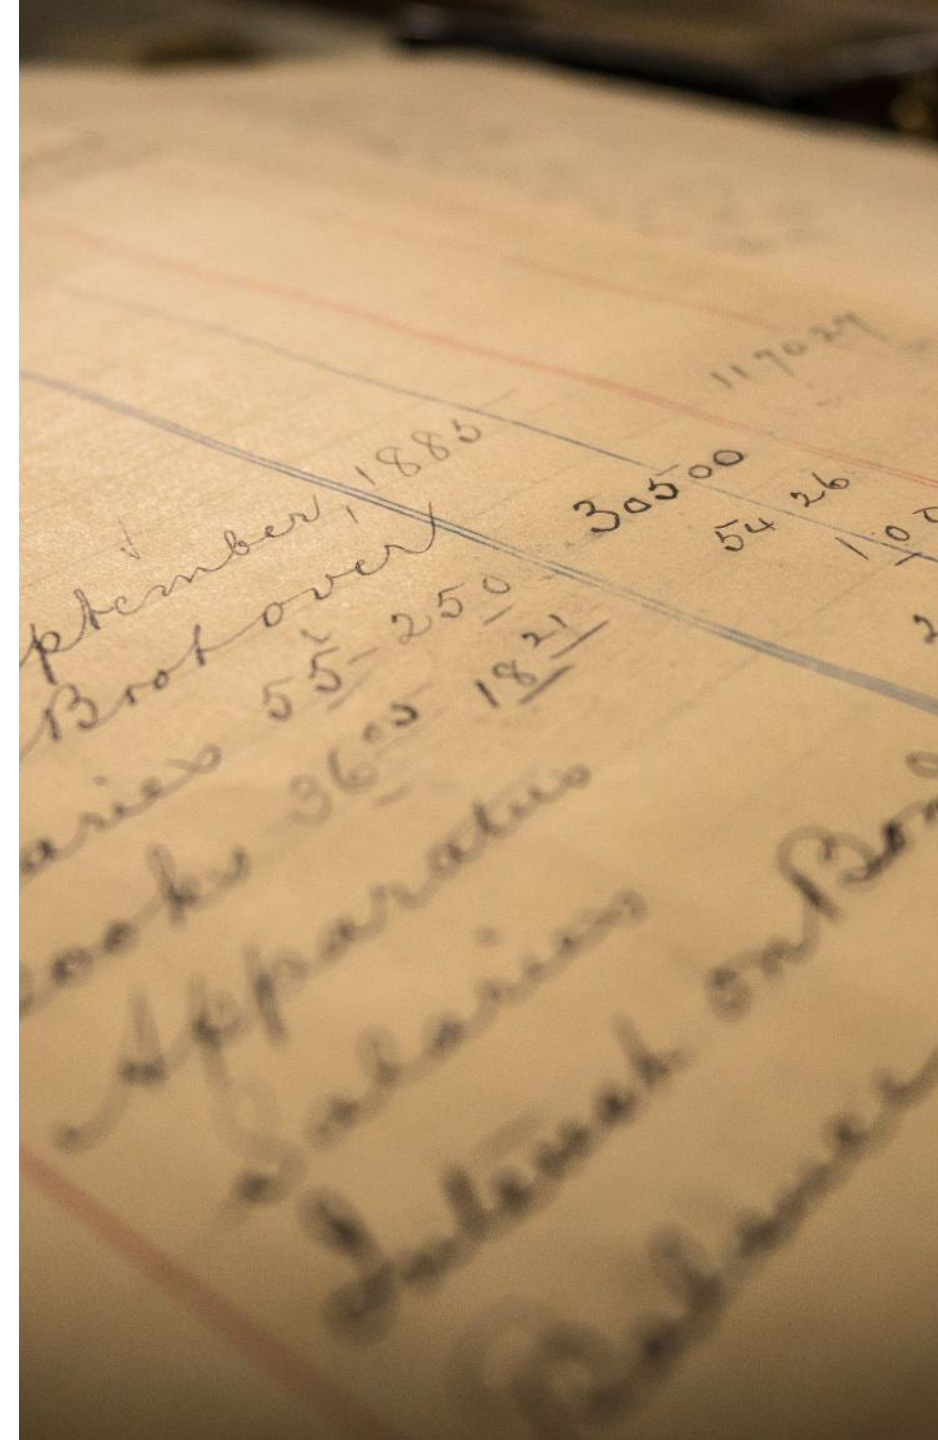 117027
ptember, 1885
Brot over 305 00
aries 55 - 250 54 26
ooks 36 05 18 21 1 0
Apparatus 2
Salaries
Interest on Bon
Balance